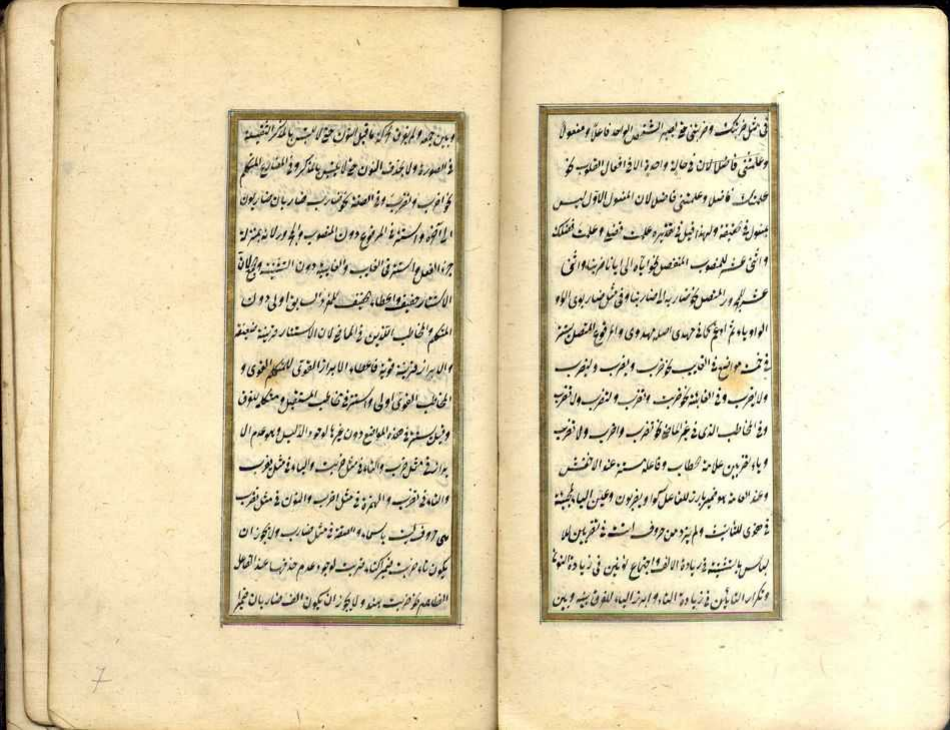 فى مثل ضربتك وضربتنى حتى لا يصير الشخص الواحد فاعلا ومفعولا
وعلمتنى فاضلا لان فى حالة واحدة الا فى افعال القلوب نحو
علمتك فاضلا وعلمتنى فاضلا لان المفعول الاول ليس
بمفعول فى حقيقة ولهذا قيل فى تقديره علمت فضلى وعلمت فضلك
واثنى عشر للمنصوب المنفصل نحو اياه الى ايانا ضربنا واثنى
عشر للمجرور المتصل نحو ضاربه الى ضاربنا وفى مثل ضاربوى الواو
الواو ياء ثم ادغم كما فى مهدى اصله مهدوى والمرفوع المتصل يستتر
فى خمسة مواضع فى الغائب نحو ضرب ويضرب وليضرب
ولا يضرب وفى الغائبة نحو ضربت وتضرب ولتضرب ولا تضرب
وفى المخاطب الذى فى غير الماضى نحو تضرب واضرب ولا تضرب
وياء تضربين علامة الخطاب وفاعله مستتر عند الاخفش
وعند العامة هو ضمير بارز للفاعل كواو يضربون وعين الياء لمجيئه
فى هذى للتانيث ولم يزد من حروف انت فى تضربين للا
لتباس بالتثنية فى زيادة الالف واجتماع نونين فى زيادة النون
وتكرار التائين فى زيادة التاء وابرز الياء للفرق بينه وبين
وبين جمعه ولم يفرق بحركة ما قبل النون حتى لا يلتبس بالمذكر الثقيلة
فى الصورة ولا بحذف النون حتى لا يلتبس بالمذكر وفى المضارع المتكلم
نحو اضرب ونضرب وفى الصفة نحو ضارب ضاربان ضاربون
الى آخره واستتر فى المرفوع دون المنصوب والمجرور لانه بمنزلة
جزء الفعل واستتر فى الغايب والغايبة دون التثنية والجمع لان
الاستتار خفيف واعطاء الخفيف للمفرد السابق اولى دون
المتكلم والمخاطب اللذين فى الماضى لان الاستتار قرينة ضعيفة
والابراز قرينة قوية فاعطاء الابراز القوى للمتكلم القوى و
المخاطب القوى اولى واستتر فى مخاطب المستقبل ومتكلمه للفرق
وقيل يستتر فى هذه المواضع دون غيرها لوجود الدليل وهو عدم الا
براز فى مثل ضرب والتاء فى مثل ضربت والياء فى مثل يضرب
والتاء فى تضرب والهمزة فى مثل اضرب والنون فى مثل نضرب
هى حروف ليست باسماء والصفة فى مثل ضارب ولا يجوز ان
يكون تاء ضربت ضميرا كتاء ضربت لوجود عدم حذفها عند الفاعل
الظاهر نحو ضربت هند ولا يجوز ان يكون الف ضاربان ضميرا
7